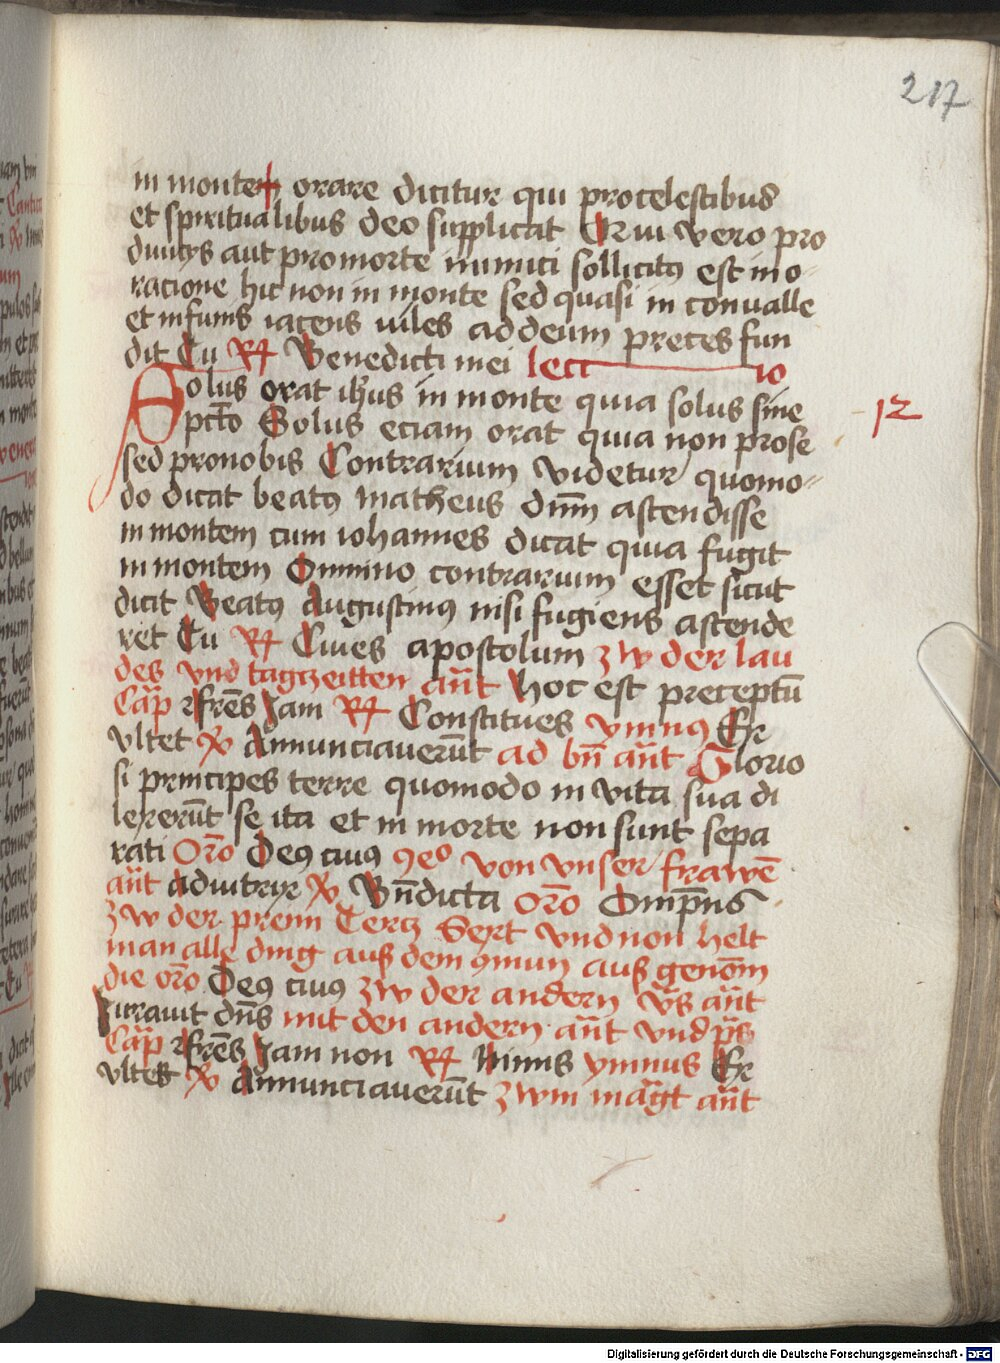 217
in montem orare dicitur qui pro celestibus
et spiritualibus deo supplicat Qui vero pro
diuicijs aut pro morte inimici sollicitꝯ est in o
racione hic non in monte sed quasi in conualle
et infimis iacens viles ad deum preces fun
dit Tu R Benedicti mei lectio
Solus orat ihus in monte quia solus sine
pcto Solus eciam orat quia non pro se
12
sed pro nobis Contrarium videtur quomo
do dicat beatꝯ matheus dnm ascendisse
in montem cum iohannes dicat quia fugit
in montem Omnino contrarium esset sicut
dicit Beatꝯ Augustinꝯ nisi fugiens ascende
ret Tu R Ciues apostolum zw der lau
des vnd tagzeitten ant hoc est preceptu
Cap ffres Iam R Constitues ymnꝯ Ex
ultet V Annunciauerut ad bn ant Glorio
si principes terre quomodo in vita sua di
lexerut se ita et in morte non sunt sepa
rati Oro Deꝯ cuiꝯ von vnser frawe
ant V Bndicta oro Ompns
zw der prenn Tercz Sext vnd non helt
man alle ding auß dem ꝯmun auß genom
die oro Deꝯ cuiꝯ zw der andern vs ant
Iurauit dns mit den andern ant vnd ps
Cap ffres Iam non R Nimis ymnus Ex
ultet V Annunciauerut zwm magt ant
Digitalisierung gefördert durch die Deutsche Forschungsgemeinschaft - DFG